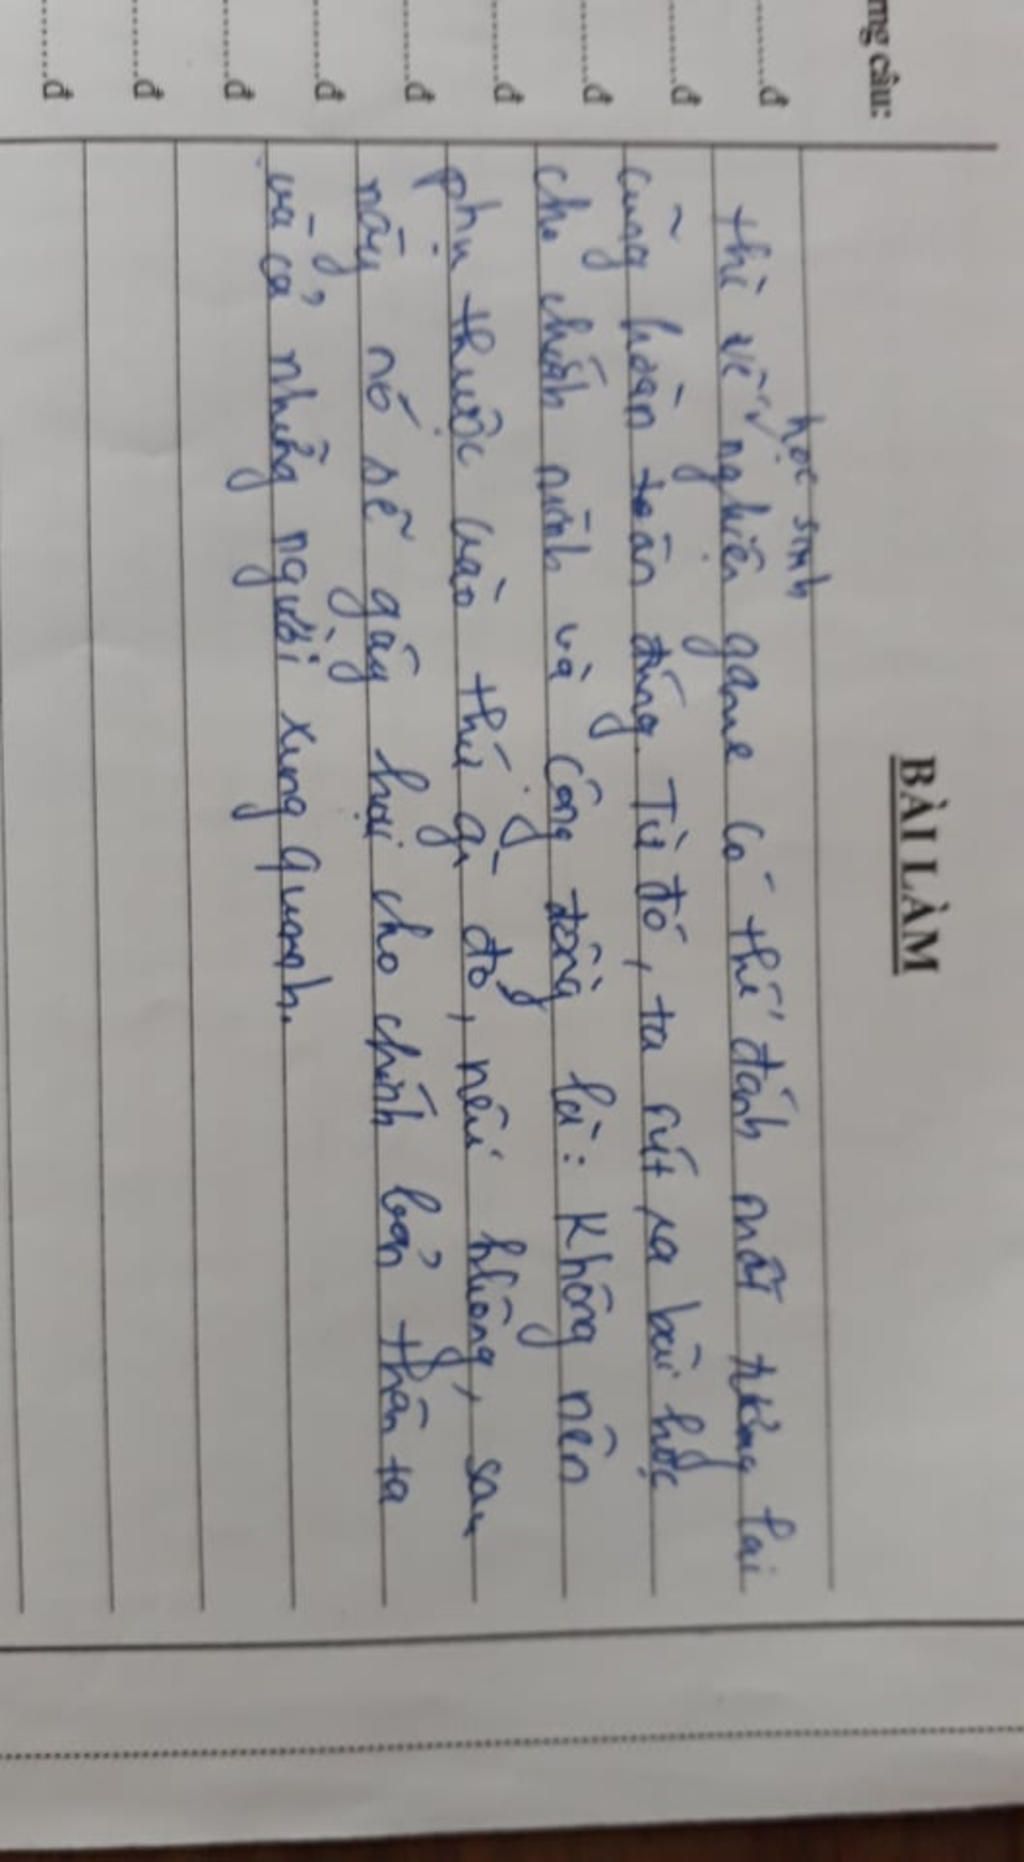 ng câu:
BÀI LÀM
........đ
học sinh
thì về nghiện game có thể đánh mất tương lai
........đ
cũng hoàn toàn đúng. Từ đó, ta rút ra bài học
........đ
cho chính mình và cộng đồng là: Không nên
........đ
phụ thuộc vào thứ gì đó, nếu không, sau
........đ
này nó sẽ gây hại cho chính bản thân ta
........đ
và cả những người xung quanh.
........đ
........đ
........đ